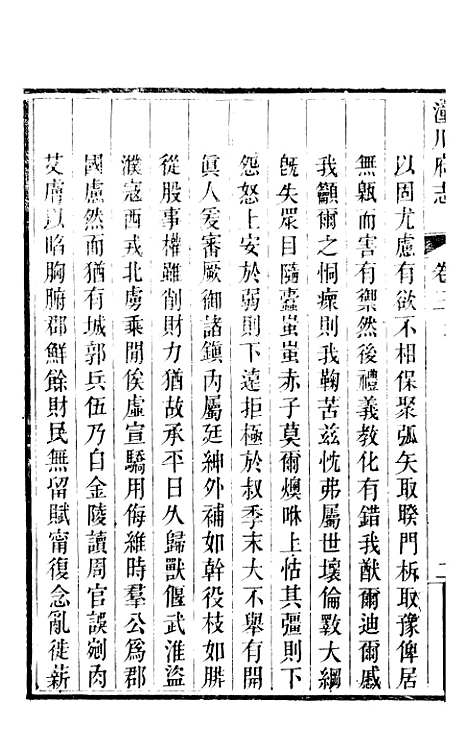 潼川府志
卷三
二
以固尤慮有欲不相保聚弧矢取睽門柝取豫俾居
無𩀱而害有禦然後禮義教化有錯我猷爾迪爾戚
我顲爾之恫瘝則我鞠苦茲忱弗屬世壞倫斁大綱
旣失眾目隨蠹蚩蚩赤子莫爾燠咻上怙其彊則下
怨怒上安於弱則下違拒極於叔季末大不舉有開
眞人爰審厥御諸鎭內屬廷紳外補如幹役枝如髀
從股事權雖削財力猶故承平日久歸獸偃武淮盜
濮寇西戎北虜乘閒俟虛宣驕用侮維時羣公為郡
國慮然而猶有城郭兵伍乃自金陵讀周官誤剜肉
艾膚以啗胸腑郡鮮餘財民無留賦甯復念亂徙薪